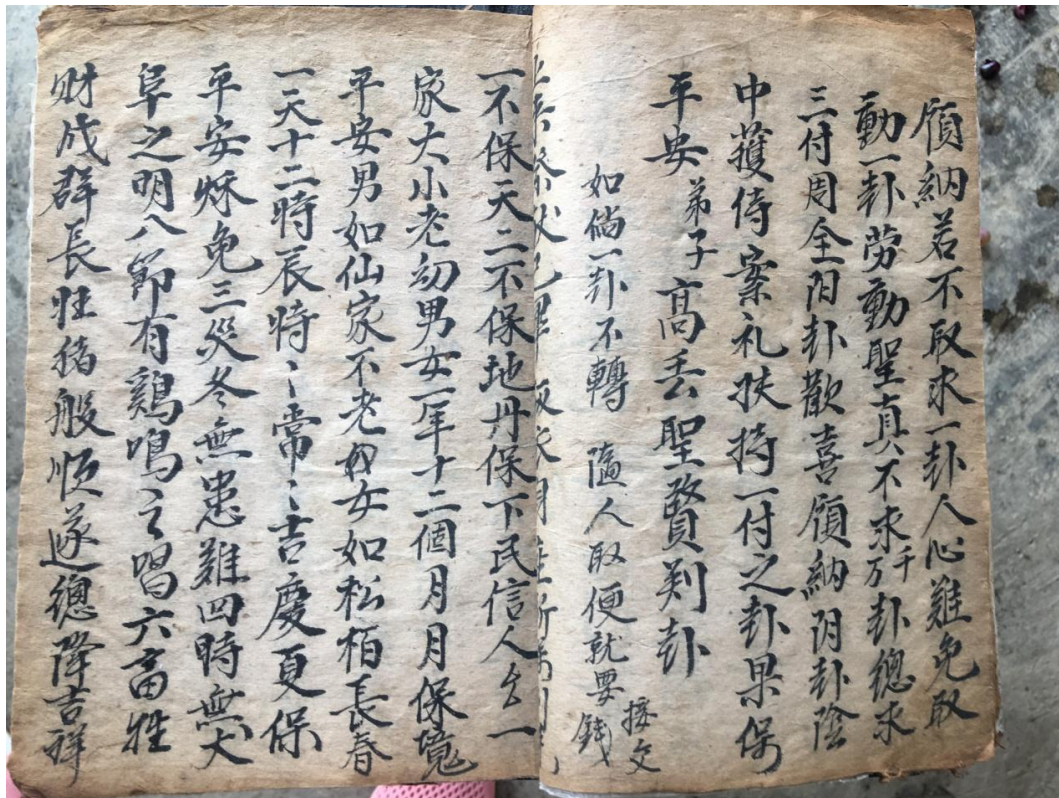 領納若不取求一卦人心難免取
動一卦劳動聖真不求千万卦總求
三付周全阳卦歡喜領納阴卦陰
中獲侍案礼扶持一付之卦果保
平安弟子高丢聖賢判卦
如倘一卦不轉 隨人取便就要錢
接文
一不保天二不保地丹保下民信人厶一
家大小老幼男女一年十二個月月保境
平安男如仙家不老女如松栢長春
一天十二時辰時〻常〻吉慶更保
平安稣免三災冬無患難四時無大
阜之明八節有鷄鳴之唱六畜牲
財成群長牲猪般順遂總降吉祥